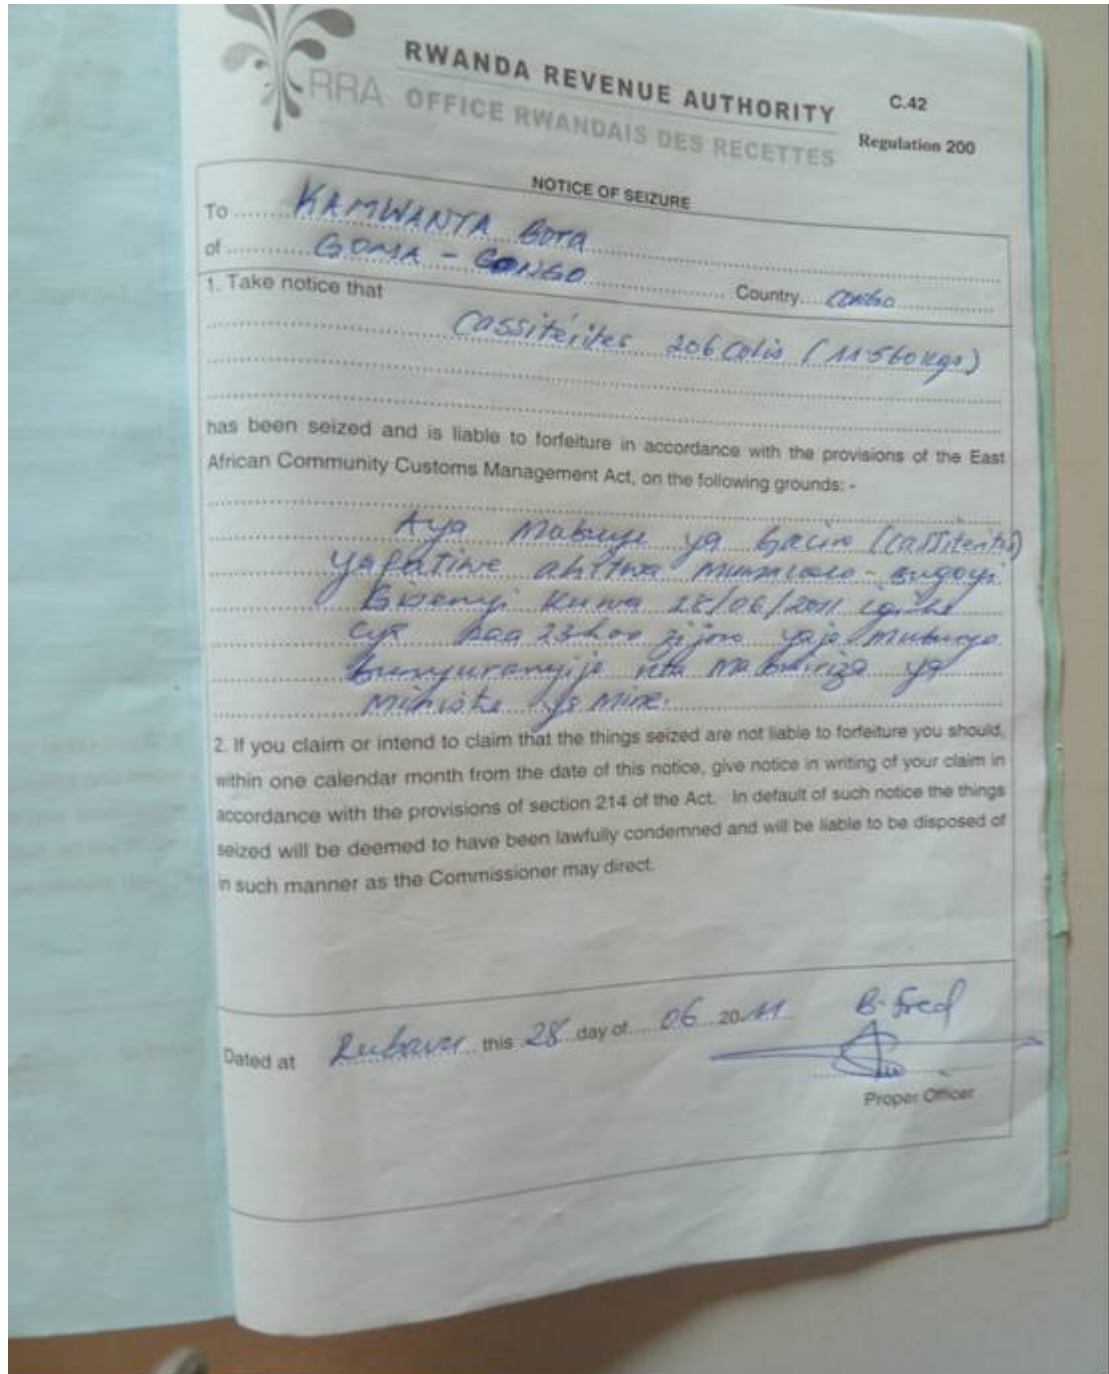 RRA
RWANDA REVENUE AUTHORITY
OFFICE RWANDAIS DES RECETTES
C.42
Regulation 200
NOTICE OF SEIZURE
To KAMWANYA BOTA
of GOMA - CONGO Country Congo
1. Take notice that
Cassitérites 206 Colis (11560 kgs)
has been seized and is liable to forfeiture in accordance with the provisions of the East
African Community Customs Management Act, on the following grounds: -
Aya mabuye ya (Cassiterites)
yafatiwe ahitwa
kuwa 28/06/2011
23h00 z'ijoro yaje muburyo
bunyuranyije ya
ya Mine.
2. If you claim or intend to claim that the things seized are not liable to forfeiture you should,
within one calendar month from the date of this notice, give notice in writing of your claim in
accordance with the provisions of section 214 of the Act. In default of such notice the things
seized will be deemed to have been lawfully condemned and will be liable to be disposed of
in such manner as the Commissioner may direct.
Dated at Rubavu this 28 day of 06 2011
B. Fred
Proper Officer